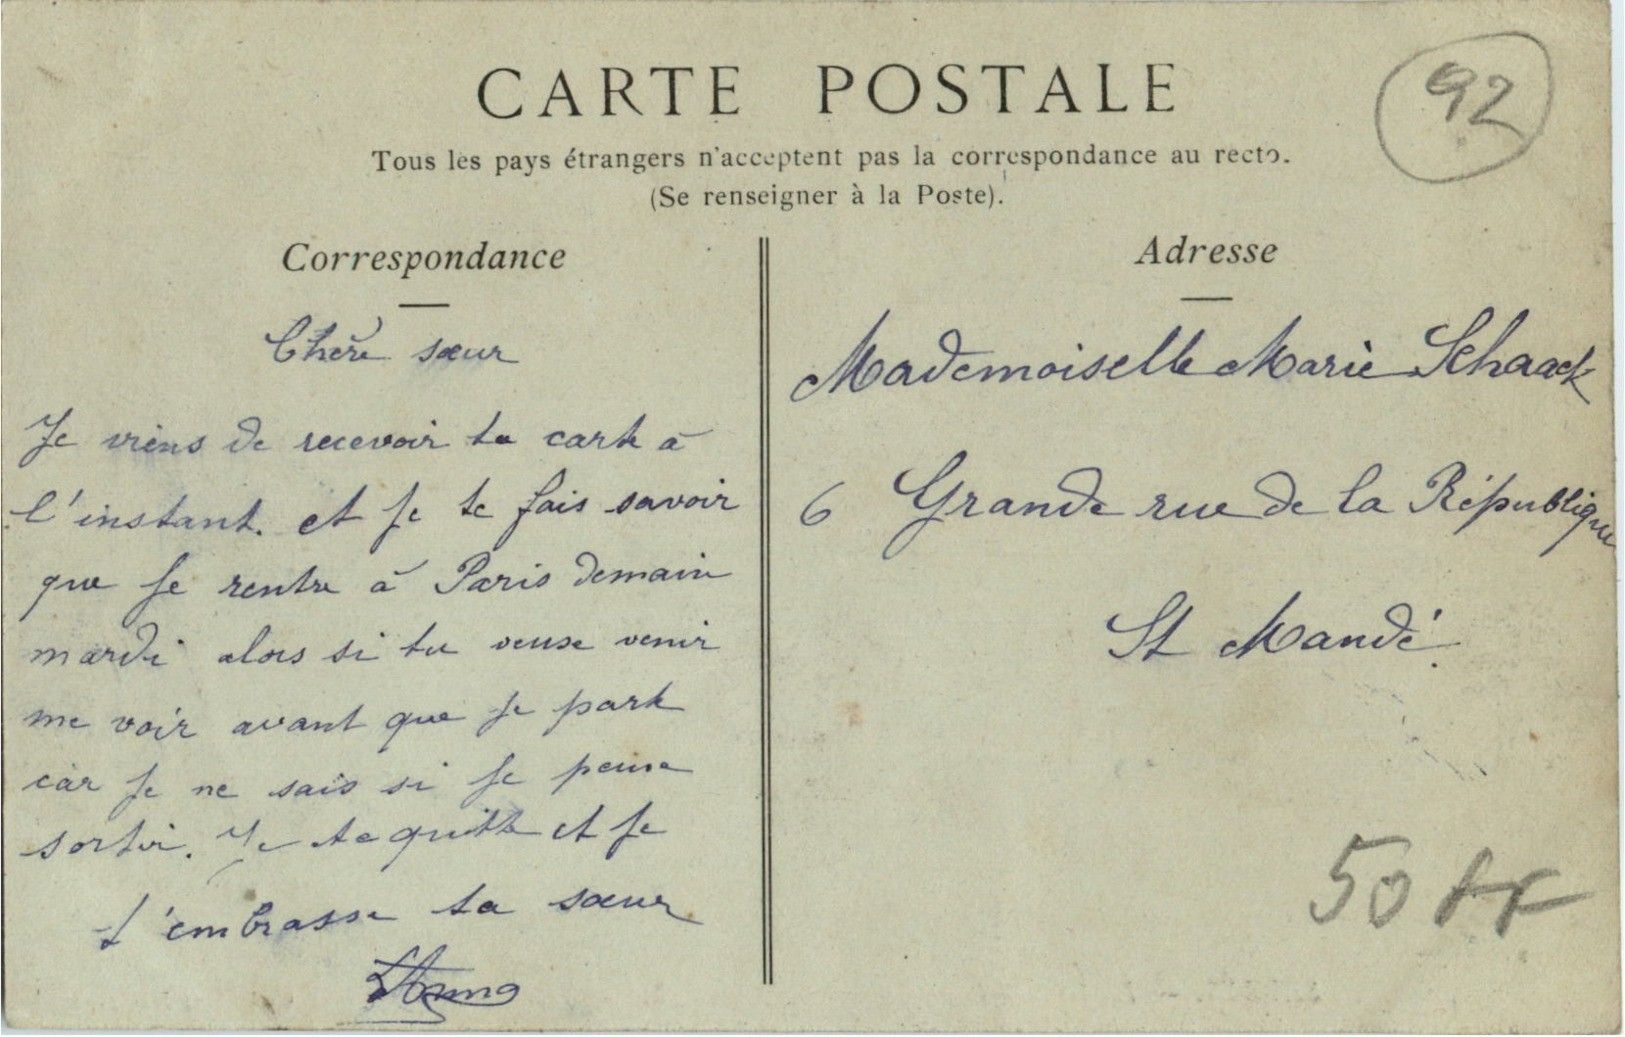 CARTE POSTALE
92
Tous les pays étrangers n'acceptent pas la correspondance au recto.
(Se renseigner à la Poste).
Correspondance
Chère sœur
Je viens de recevoir ta carte à
l'instant. et je te fais savoir
que je rentre à Paris demain
mardi alors si tu veuse venir
me voir avant que je parte
car je ne sais si je peuse
sortir. Je te quitte et je
t'embrasse ta sœur
Adresse
Mademoiselle Marie Schaack
6 Grande rue de la République
St Mandé.
50